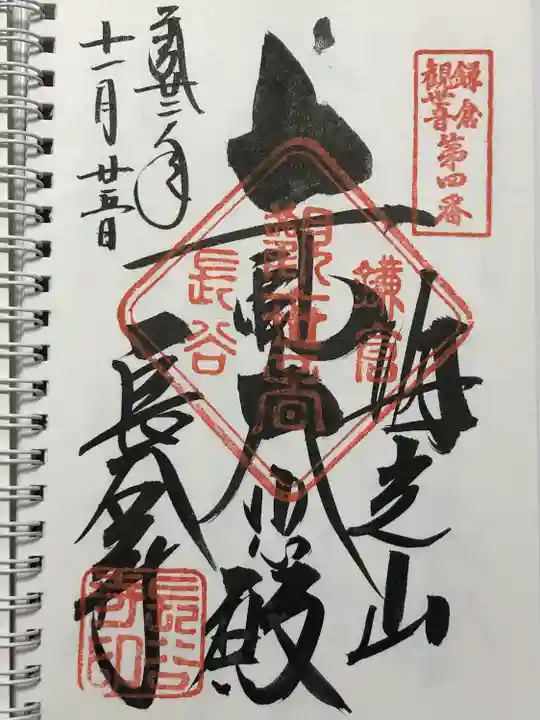 鎌倉
観世音第四番
海光山
十一面大悲殿
年
十一月廿五日
長谷寺
鎌倉
観世音
長谷
長谷
寺印